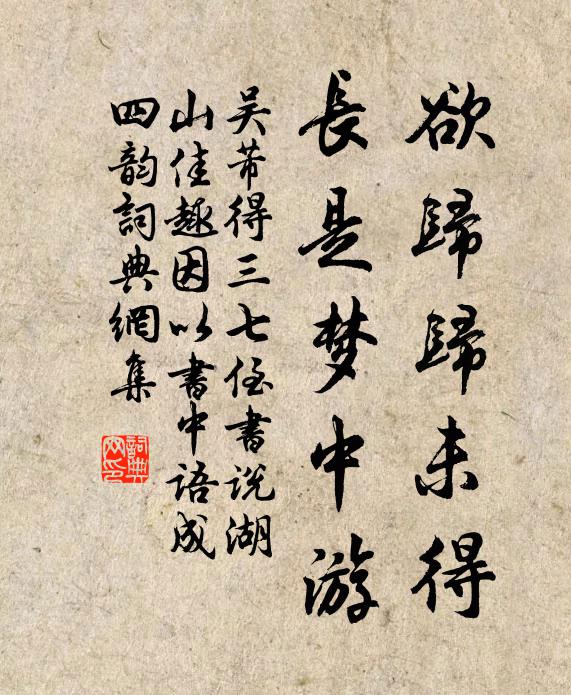 欲歸歸未得
長是梦中游
吴芾得三七侄書说湖
山佳趣因以書中语成
四韵詞典網集
詞典
网印